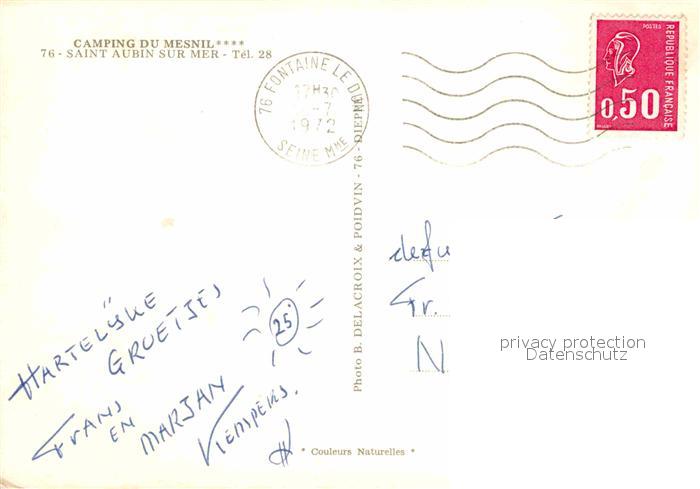 CAMPING DU MESNIL****
76 - SAINT AUBIN SUR MER - Tél. 28
76 FONTAINE LE DUN
17H30
-7
1972
SEINE Mme
POSTES
REPUBLIQUE FRANÇAISE
0,50
Photo B. DELACROIX & POIDVIN - 76 - DIEPPE
HARTELIJKE
GROETJES
25°
FRANS
EN
MARJAN
Kempers.
Fr.
N
privacy protection
Datenschutz
* Couleurs Naturelles *